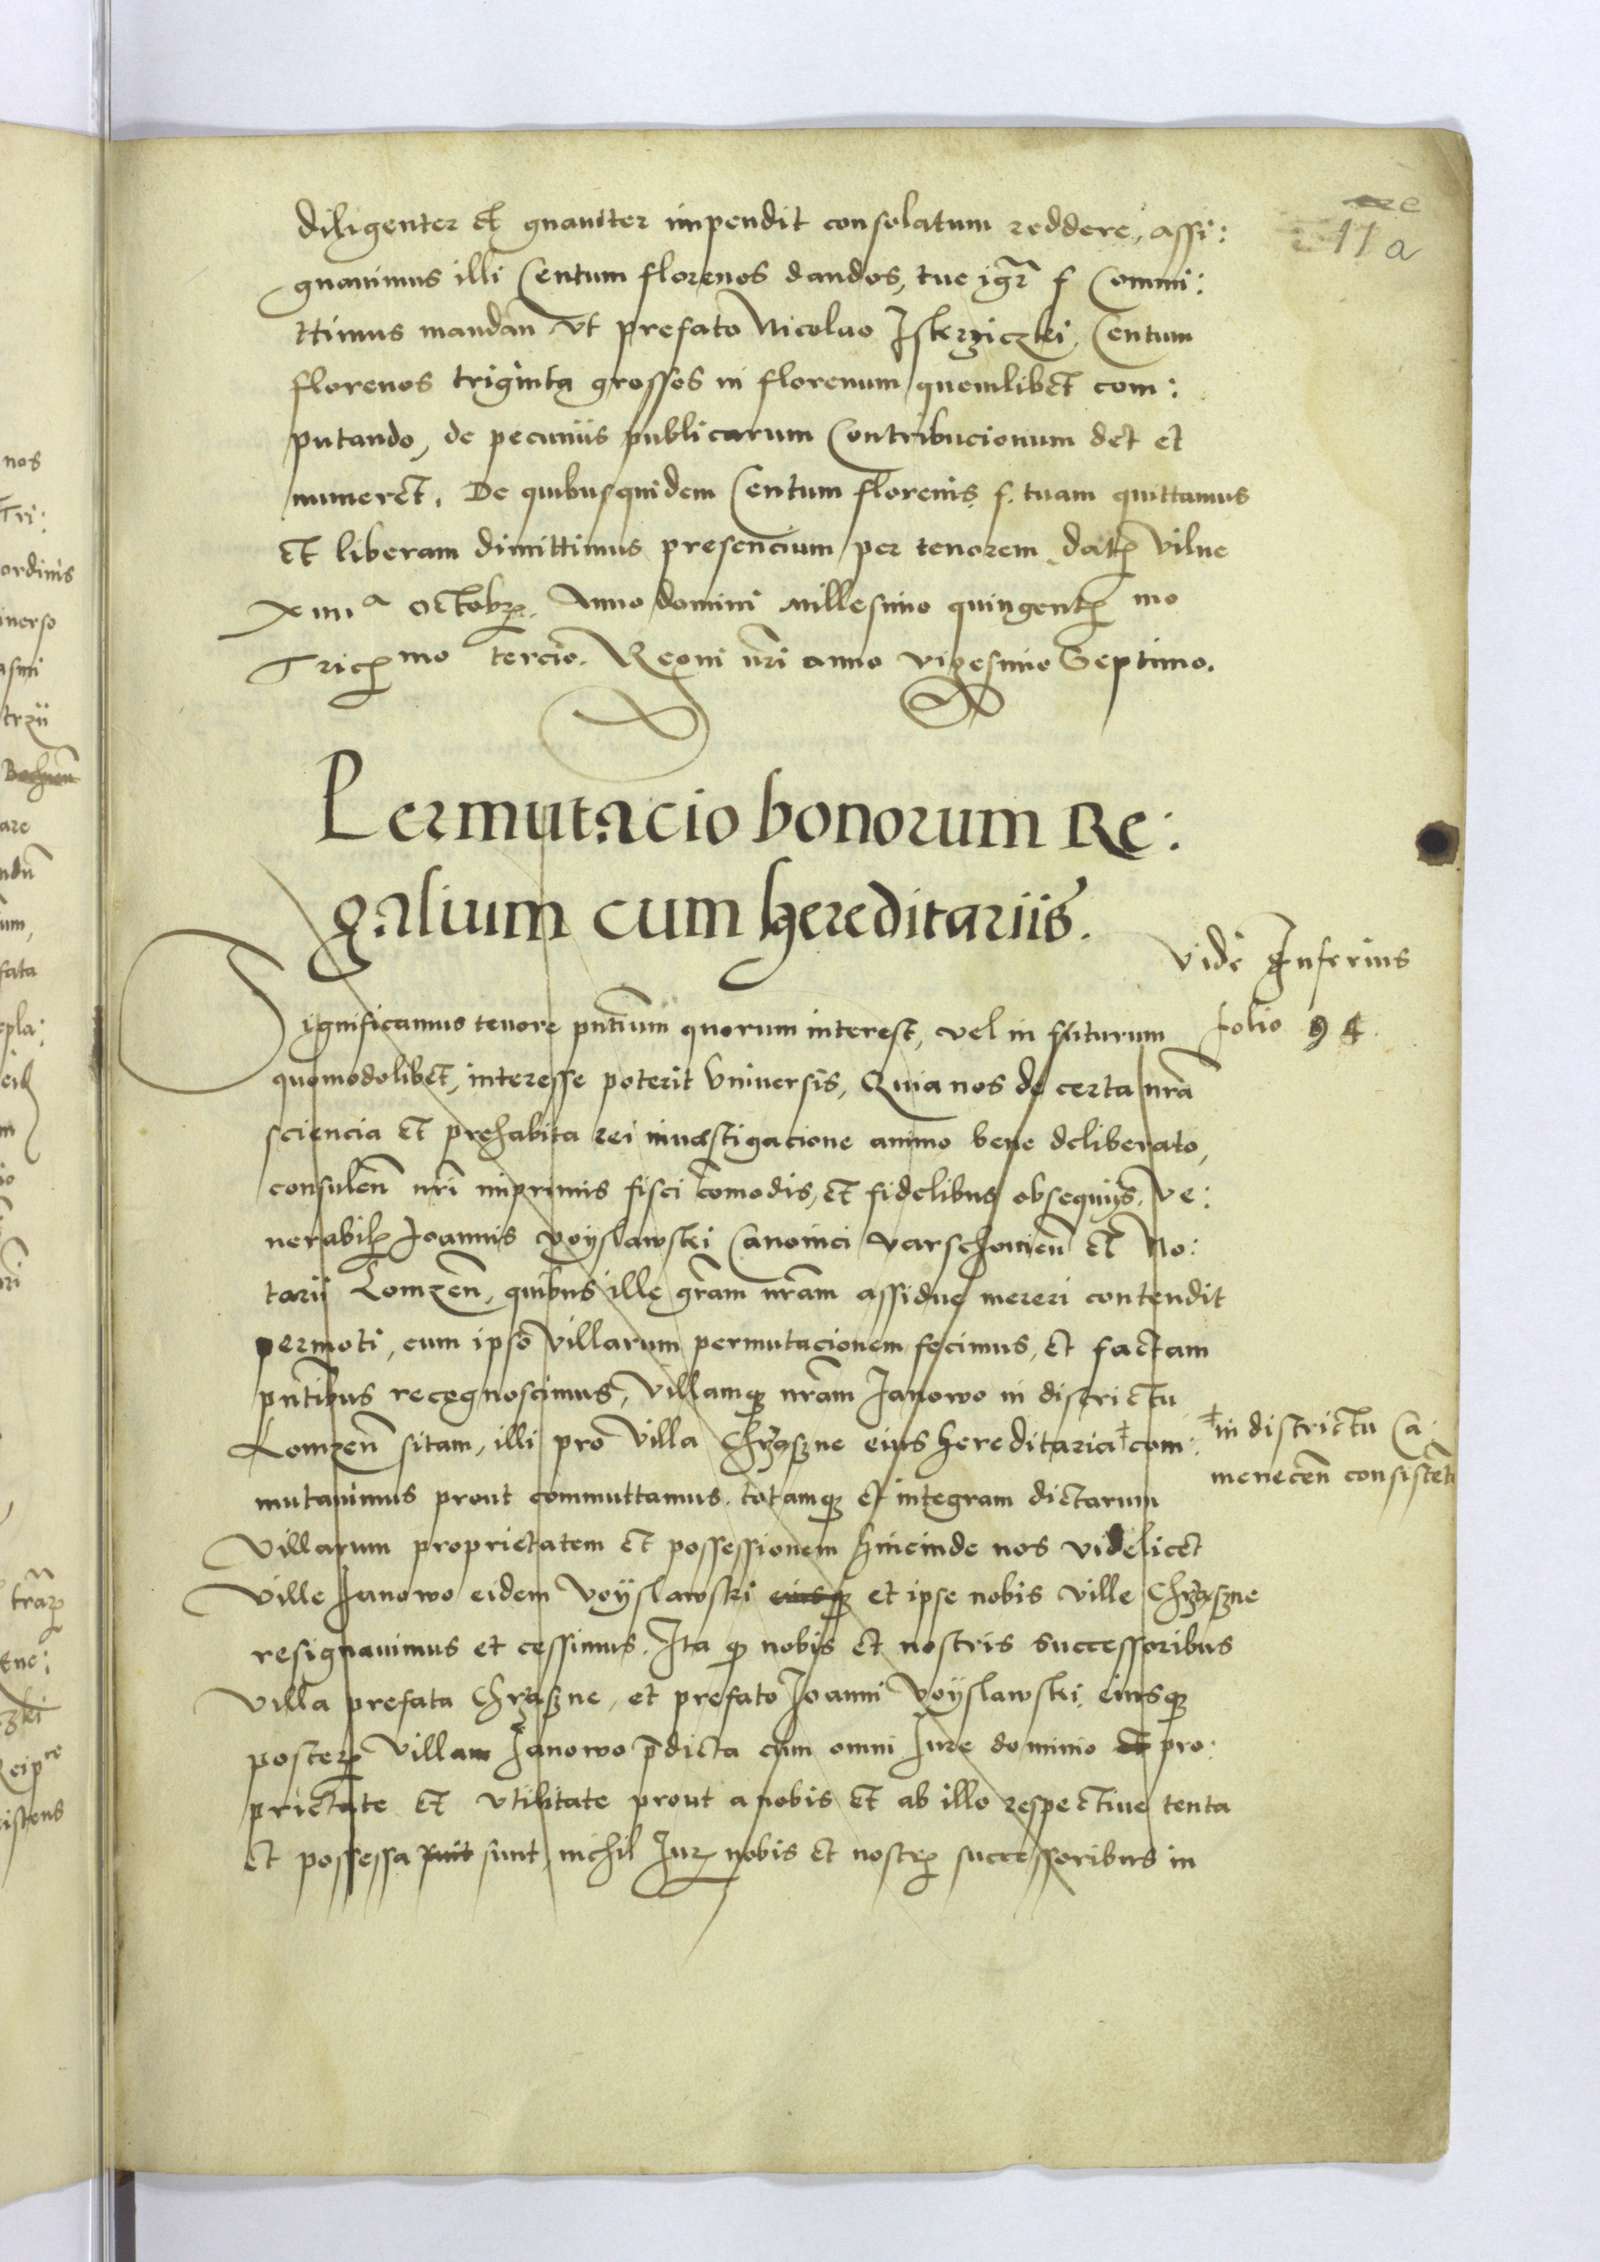 11 a
diligenter et gnauiter impendit consolatum reddere, assi:
gnauimus illi Centum florenos dandos, tue igr̃ f Commi:
ttimus mandañ vt prefato Nicolao Iskrziczki Centum
florenos triginta grossos in florenum quemlibet com:
putando, de pecuniis publicarum Contribucionum det et
numeret. De quibusquidem Centum florenis f. tuam quittamus
et liberam dimittimus presencium per tenorem datꝭ Vilne
XIIIIa Octobrꝭ. Anno domini Millesimo quingentꝭmo
Tricꝭmo tercio. Regni nr̃i anno vigesimo Septimo.
Permutacio bonorum Re:
galium cum hereditariis.
Vide Inferius
folio 94.
Significamus tenore pñtium quorum interest, vel in futurum
quomodolibet, interesse poterit Vniuersis, Quia nos de certa nr̃a
sciencia et prehabita rei inuestigacione animo bene deliberato,
consuleñ nr̃i imprimis fisci com̃odis, et fidelibus obsequijs, Ve:
nerabilꝭ Joannis Voyslawski Canonici Varschouieñ et No:
tarii Lomzeñ, quibus ille gr̃am nr̃am assidue mereri contendit
permoti, cum ipso villarum permutacionem fecimus, et factam
pñtibus recognoscimus, Villamqꝫ nr̃am Janowo in districtu
Lomzeñ sitam, illi pro villa Chrząszne eius hereditaria ‡ com:
‡ in districtu Ca
meneceñ consisteñt
mutauimus prout commuttamus. totamqꝫ et integram dictarum
Villarum proprietatem et possessionem hincinde nos videlicet
Ville Janowo eidem Voyslawski eiusqꝫ et ipse nobis ville Chrząszne
resignauimus et cessimus. Ita qꝫ nobis et nostris successoribus
Villa prefata Chrząszne, et prefato Joanni Voyslawski eiusqꝫ
posterꝭ villam Janowo p̃dicta cum omni Iure dominio et pro:
prietate et vtilitate prout a nobis et ab illo respectiue tenta
et possessa fuit sunt, nichil Iurꝭ nobis et nostrꝭ successoribus in